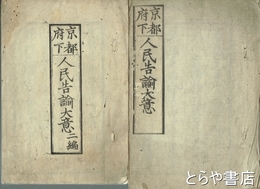 京都
府下
人民告諭大意
京都
府下
人民告諭大意二編
とらや書店